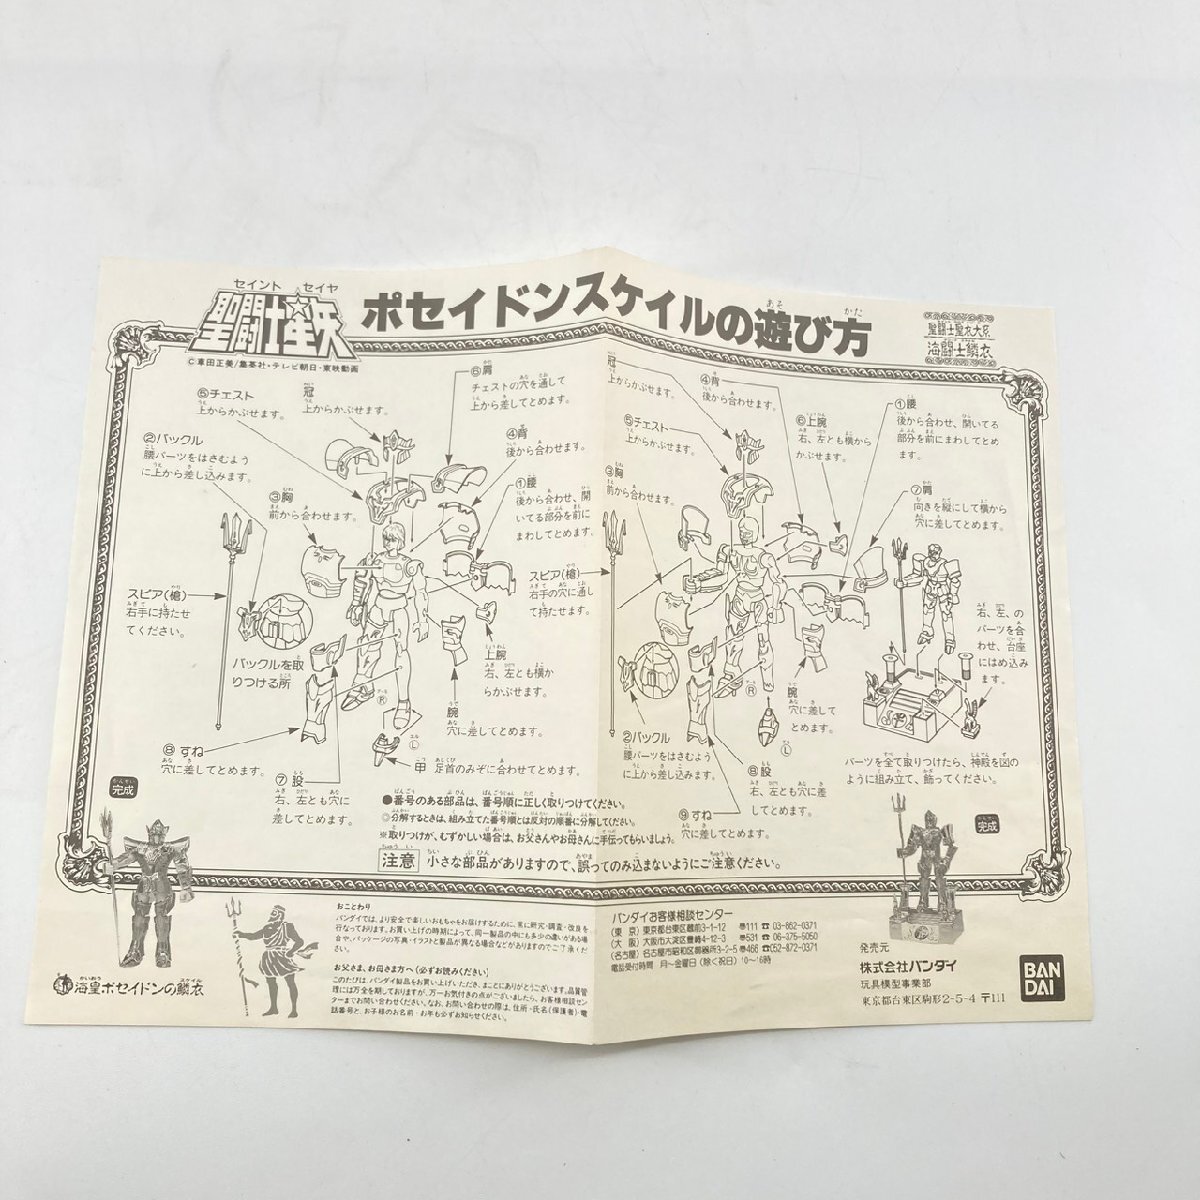 セイント セイヤ
聖闘士星矢
ポセイドンスケイルの遊び方
あそ かた
聖闘士聖衣大系
海闘士鱗衣
©車田正美/集英社・テレビ朝日・東映動画
⑤チェスト
上からかぶせます。
冠
上からかぶせます。
⑥肩
チェストの穴を通して
上から差してとめます。
②バックル
腰パーツをはさむよう
に上から差し込みます。
④背
後から合わせます。
③胸
前から合わせます。
①腰
後から合わせ、開
いてる部分を前に
まわしてとめます。
スピア(槍)
右手に持たせ
てください。
バックルを取
りつける所
上腕
右、左とも横か
らかぶせます。
腕
穴に差してとめます。
⑧すね
穴に差してとめます。
⑦股
右、左とも穴に
差してとめます。
甲 足首のみぞに合わせてとめます。
Ⓡ
Ⓛ
完成
冠
上からかぶせます。
④背
後から合わせます。
⑤チェスト
上からかぶせます。
⑥上腕
右、左とも横から
かぶせます。
①腰
後から合わせ、開いてる
部分を前にまわしてとめ
ます。
③胸
前から合わせます。
⑦肩
向きを縦にして横から
穴に差してとめます。
スピア(槍)
右手の穴に通し
て持たせます。
右、左、の
パーツを合
わせ、台座
にはめ込み
ます。
腕
穴に差して
とめます。
②バックル
腰パーツをはさむよう
に上から差し込みます。
⑧股
右、左とも穴に差
してとめます。
⑨すね
穴に差してとめます。
Ⓡ
Ⓛ
パーツを全て取りつけたら、神殿を図の
ように組み立て、飾ってください。
完成
●番号のある部品は、番号順に正しく取りつけてください。
◎分解するときは、組み立てた番号順とは反対の順番に分解してください。
※取りつけが、むずかしい場合は、お父さんやお母さんに手伝ってもらいましょう。
注意 小さな部品がありますので、誤ってのみ込まないようにご注意ください。
海皇ポセイドンの鱗衣
おことわり
バンダイでは、より安全で楽しいおもちゃをお届けするために、常に研究・調査・改良を
行なっております。お買い上げの時期によって、同一製品の中にも多少の違いがある場
合や、パッケージの写真・イラストと製品が異なる場合などがありますのでご了承くだ
さい。
お父さま、お母さま方へ(必ずお読みください)
このたびは、バンダイ製品をお買い上げいただき、まことにありがとうございます。品質管
理には万全を期しておりますが、万一お気付きの点がございましたら、お客様相談セン
ターまでお問い合わせください。なお、お問い合わせの際は、住所・氏名(保護者)・電
話番号と、お子様のお名前・お年も必ずお知らせください。
バンダイお客様相談センター
(東 京) 東京都台東区蔵前3-1-12 〒111 ☎ 03-862-0371
(大 阪) 大阪市大淀区豊崎4-12-3 〒531 ☎ 06-375-5050
(名古屋) 名古屋市昭和区御器所3-2-5 〒466 ☎052-872-0371
電話受付時間 月〜金曜日(除く祝日)10〜16時
発売元
株式会社バンダイ
玩具模型事業部
東京都台東区駒形2-5-4 〒111
BAN
DAI